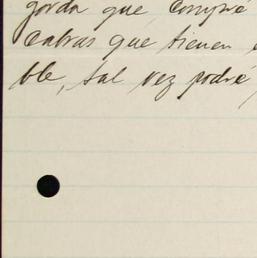 gorda que compré
cabras que tienen
ble, tal vez podré